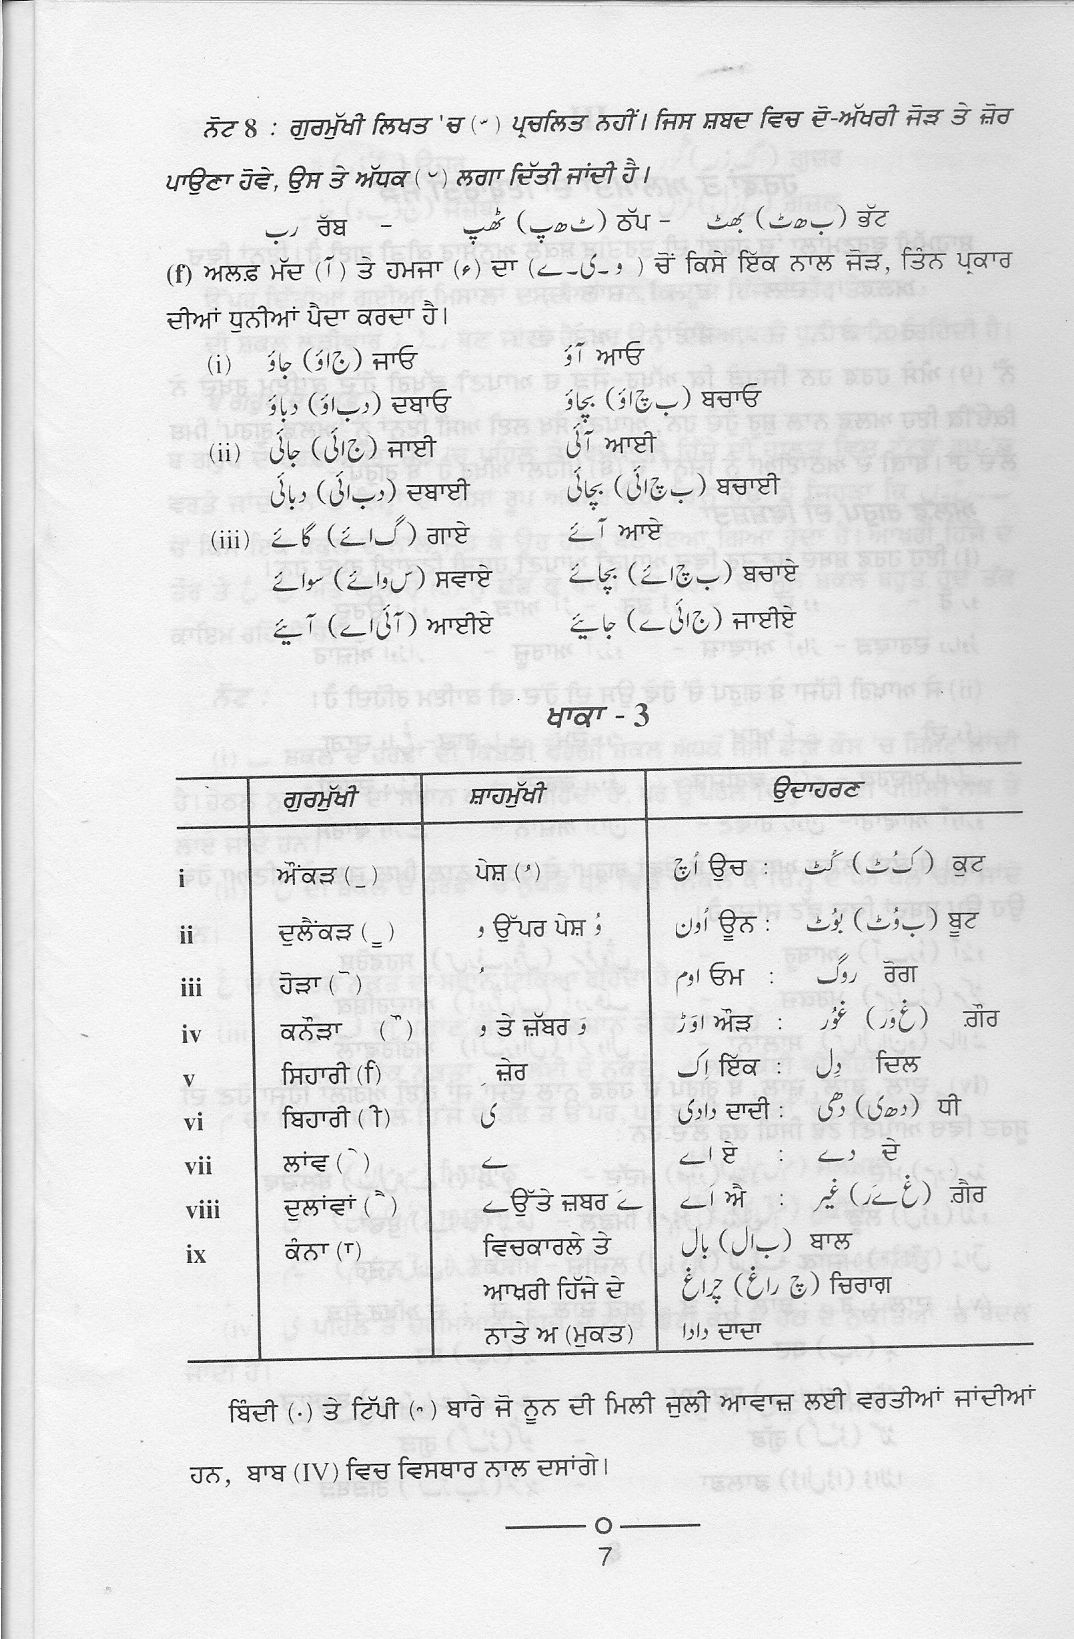 ਨੋਟ 8 : ਗੁਰਮੁੱਖੀ ਲਿਖਤ 'ਚ ( ّ ) ਪ੍ਰਚਲਿਤ ਨਹੀਂ। ਜਿਸ ਸ਼ਬਦ ਵਿਚ ਦੋ-ਅੱਖਰੀ ਜੋੜ ਤੇ ਜ਼ੋਰ
ਪਾਉਣਾ ਹੋਵੇ, ਉਸ ਤੇ ਅੱਧਕ ( ੱ ) ਲਗਾ ਦਿੱਤੀ ਜਾਂਦੀ ਹੈ।
رب ਰੱਬ - ٹھپ (ٹ ھ پ) ਠੱਪ - بھٹ (ب ھ ٹ) ਭੱਟ
(f) ਅਲਫ਼ ਮੱਦ (آ) ਤੇ ਹਮਜਾ (ء) ਦਾ (و-ی-ے) ਚੋਂ ਕਿਸੇ ਇੱਕ ਨਾਲ ਜੋੜ, ਤਿੰਨ ਪ੍ਰਕਾਰ
ਦੀਆਂ ਧੁਨੀਆਂ ਪੈਦਾ ਕਰਦਾ ਹੈ।
(i) جاؤ (ج اؤ) ਜਾਓ آؤ ਆਓ
دباؤ (دب اؤ) ਦਬਾਓ بچاؤ (ب چ اؤ) ਬਚਾਓ
(ii) جائی (ج ائی) ਜਾਈ آئی ਆਈ
دبائی (دب ائی) ਦਬਾਈ بچائی (ب چ ائی) ਬਚਾਈ
(iii) گائے (گ ائے) ਗਾਏ آئے ਆਏ
سوائے (س وائے) ਸਵਾਏ بچائے (ب چ ائے) ਬਚਾਏ
آئیے (آئی اے) ਆਈਏ جایئے (ج ائی ے) ਜਾਈਏ
ਖਾਕਾ - 3
ਗੁਰਮੁੱਖੀ ਸ਼ਾਹਮੁੱਖੀ ਉਦਾਹਰਣ
i ਔਂਕੜ ( ੁ ) ਪੇਸ਼ ( ُ ) اُچ ਉਚ : کُٹ (ک ُٹ) ਕੁਟ
ii ਦੁਲੈਂਕੜ ( ੂ ) و ਉੱਪਰ ਪੇਸ਼ وُ اُون ਊਨ : بُوٹ (ب وُٹ) ਬੂਟ
iii ਹੋੜਾ ( ੋ ) ُ اوم ਓਮ : روگ ਰੋਗ
iv ਕਨੌੜਾ ( ੌ ) و ਤੇ ਜ਼ੱਬਰ وَ اوَڑ ਔੜ : غَور (غ وَر) ਗ਼ੌਰ
v ਸਿਹਾਰੀ (ਿ) ِ ਜ਼ੇਰ اِک ਇੱਕ : دِل ਦਿਲ
vi ਬਿਹਾਰੀ (ੀ) ی دادی ਦਾਦੀ : دھی (دھ ی) ਧੀ
vii ਲਾਂਵ ( ੇ ) ے اے ਏ : دے ਦੇ
viii ਦੁਲਾਂਵਾਂ ( ੈ ) ے ਉੱਤੇ ਜ਼ਬਰ ےَ اَے ਐ : غَیر (غ ےَر) ਗ਼ੈਰ
ix ਕੰਨਾ (ਾ) ਵਿਚਕਾਰਲੇ ਤੇ بال (ب ال) ਬਾਲ
ਆਖਰੀ ਹਿੱਜੇ ਦੇ چراغ (چ راغ) ਚਿਰਾਗ਼
ਨਾਤੇ ਅ (ਮੁਕਤ) دادا ਦਾਦਾ
ਬਿੰਦੀ (ਂ) ਤੇ ਟਿੱਪੀ (ੰ) ਬਾਰੇ ਜੋ ਨੂਨ ਦੀ ਮਿਲੀ ਜੁਲੀ ਆਵਾਜ਼ ਲਈ ਵਰਤੀਆਂ ਜਾਂਦੀਆਂ
ਹਨ, ਬਾਬ (IV) ਵਿਚ ਵਿਸਥਾਰ ਨਾਲ ਦਸਾਂਗੇ।
7